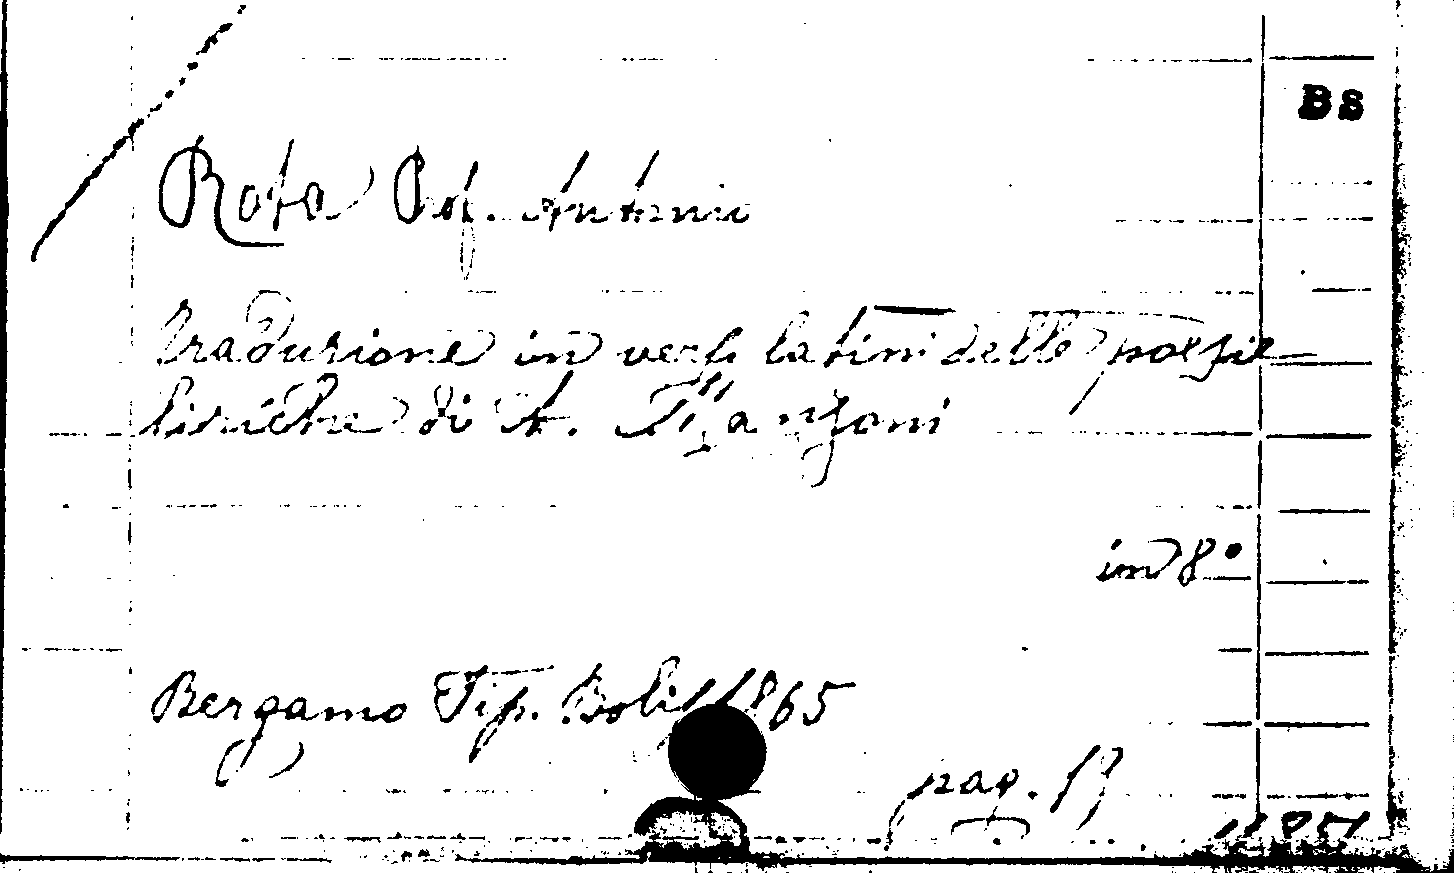 BS
Rota Prof. Antonio
Traduzione in versi latini delle poesie
liriche di A. Manzoni
in 8°
Bergamo Tip. Bolis 1865
pag. 17